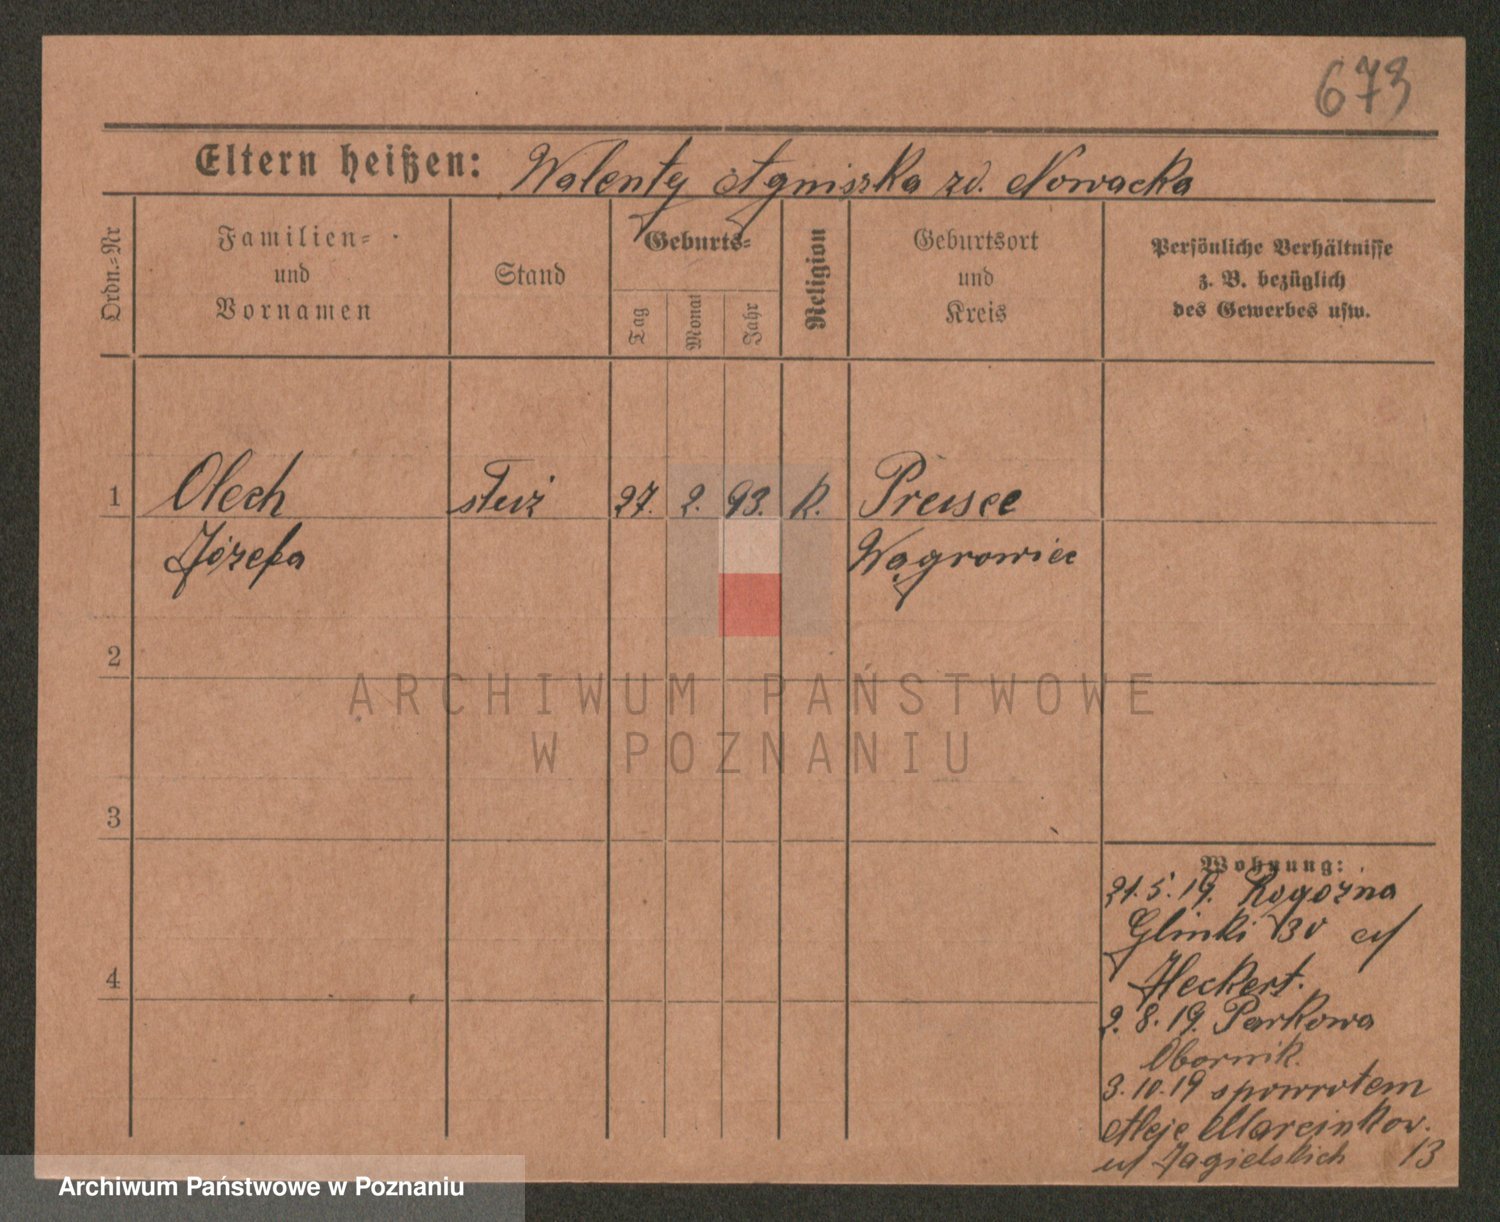 673
Eltern heißen: Walenty Agniszka zd. Nowacka
Ordn.-Nr
Familien-
und
Vornamen
Stand
Geburts-
Tag
Monat
Jahr
Religion
Geburtsort
und
Kreis
Persönliche Verhältnisse
z. B. bezüglich
des Gewerbes usw.
1 Olech służ 27. 2. 93. k. Preusee
Józefa Wągrowiec
2
3
4
Wohnung:
21.5.19. Rogoźna
Glinki
Heckert.
2.8.19. Parkowa
Obornik.
3.10.19 spowrotem
Aleje Marcinkow.
u/ Jagielskich 13
ARCHIWUM PAŃSTWOWE
W POZNANIU
Archiwum Państwowe w Poznaniu